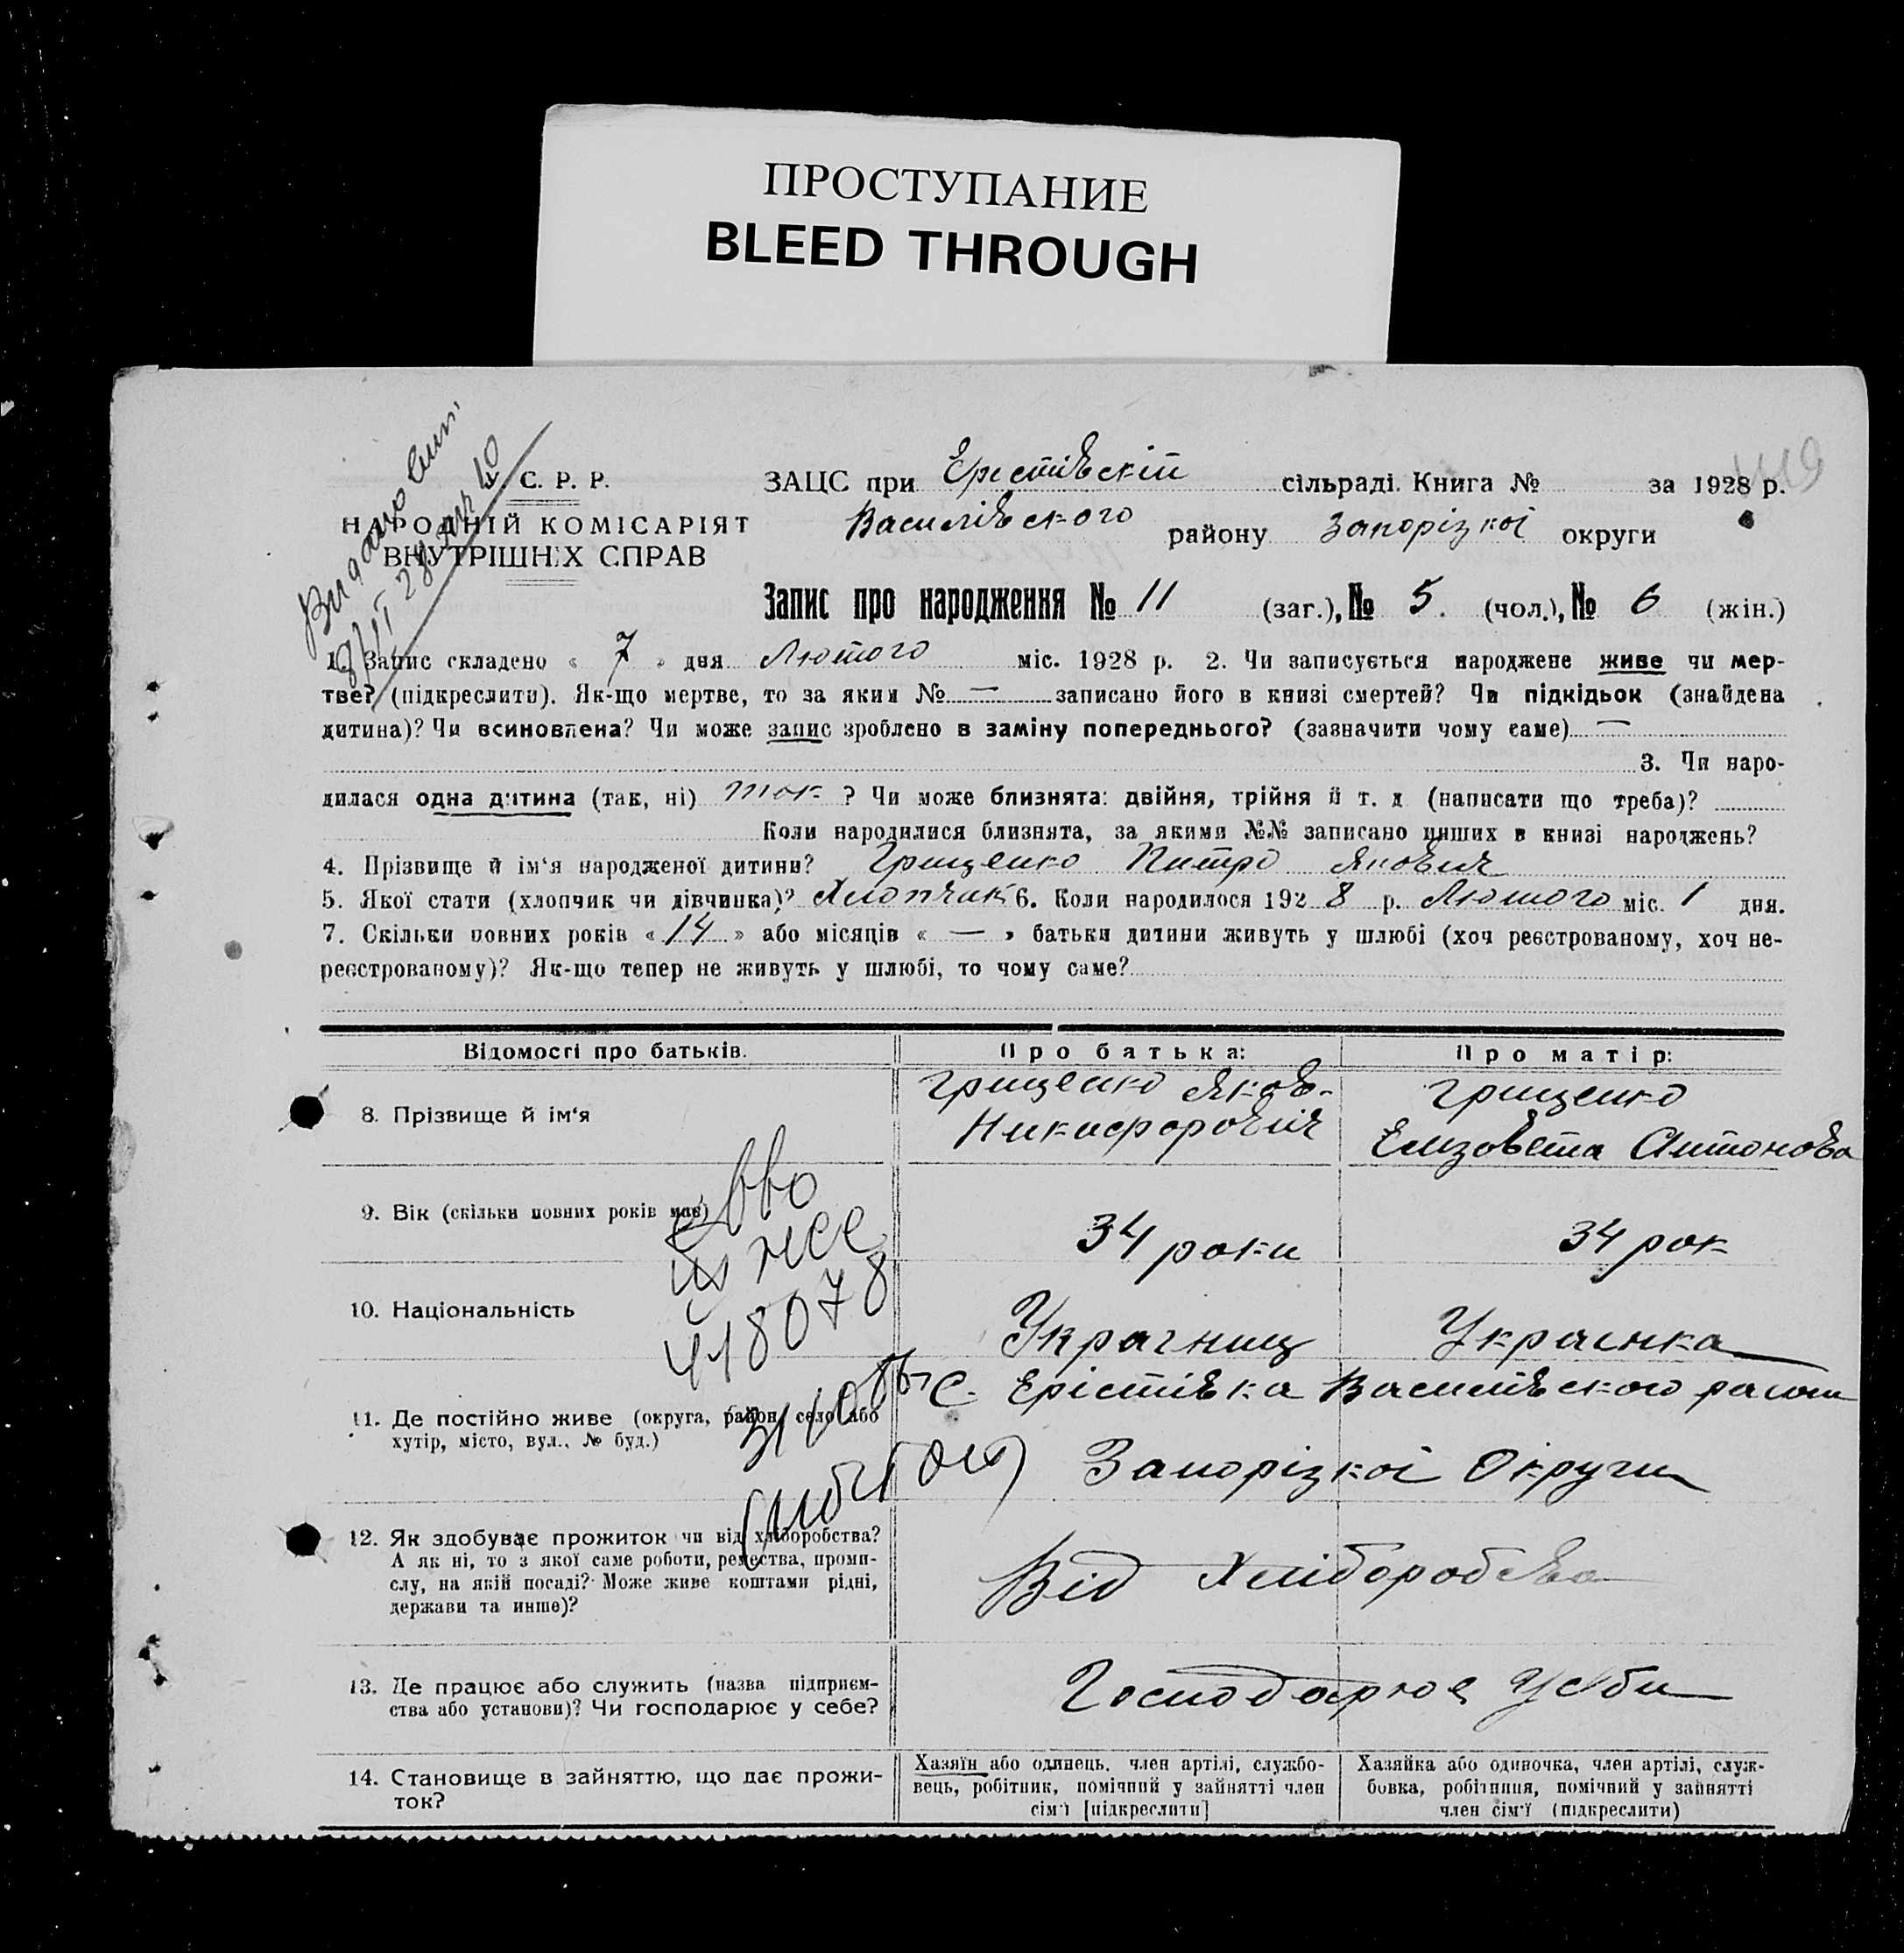 ПРОСТУПАНИЕ
BLEED THROUGH
У. С. Р. Р.
НАРОДНІЙ КОМІСАРІЯТ
ВНУТРІШНІХ СПРАВ
ЗАЦС при Ерестівскій сільраді. Книга № за 1928 р.
Василівського району Запорізкоі округи
Запис про народження № 11 (заг.), № 5. (чол.), № 6 (жін.)
1. Запис складено « 7 » дня Лютого міс. 1928 р. 2. Чи записується народжене живе чи мер-
тве? (підкреслити). Як-що мертве, то за яким № — записано його в книзі смертей? Чи підкідьок (знайдена
дитина)? Чи всиновлена? Чи може запис зроблено в заміну попереднього? (зазначити чому саме) —
3. Чи наро-
дилася одна дитина (так, ні) так ? Чи може близнята: двійня, трійня й т. д (написати що треба)?
Коли народилися близнята, за якими №№ записано инших в книзі народжень?
4. Прізвище й ім‘я народженої дитини? Грищенко Питро Якович
5. Якої стати (хлопчик чи дівчинка)? Хлопчик 6. Коли народилося 1928 р. Лютого міс. 1 дня.
7. Скільки повних років « 14 » або місяців « — » батьки дитини живуть у шлюбі (хоч реєстрованому, хоч не-
реєстрованому)? Як-що тепер не живуть у шлюбі, то чому саме?
Відомості про батьків. Про батька: Про матір:
8. Прізвище й ім‘я
Грищенко Яков.
Никифорович
Грищенко
Елизовета Антонова
9. Вік (скільки повних років має) 34 роки 34 рок
10. Національність Украіниц Украінка
11. Де постійно живе (округа, район, село або
хутір, місто, вул., № буд.)
С. Ерістівка Василівського
Запорізкоі Округи
12. Як здобуває прожиток чи від хліборобства?
А як ні, то з якої саме роботи, ремества, проми-
слу, на якій посаді? Може живе коштами рідні,
держави та инше)?
Від Хліборобсва
13. Де працює або служить (назва підприєм-
ства або установи)? Чи господарює у себе?
Господарює Усби
14. Становище в зайняттю, що дає прожи-
ток?
Хазяїн або одинець, член артілі, службо-
вець, робітник, помічний у зайнятті член
сім'ї [підкреслити]
Хазяйка або одиночка, член артілі, служ-
бовка, робітниця, помічний у зайнятті
член сім'ї (підкреслити)
418078